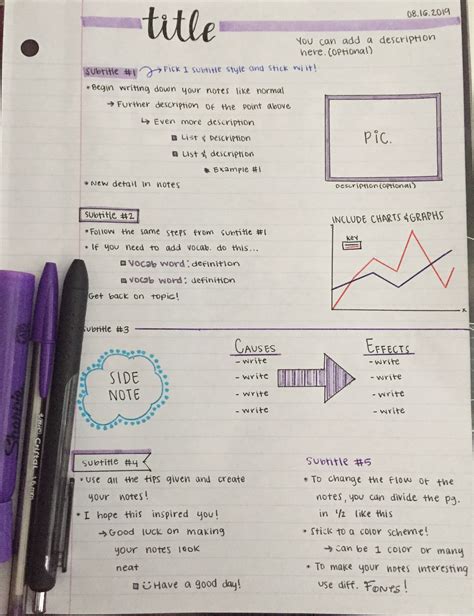 08.16.2019
title
You can add a description
here. (optional)
Subtitle #1 → Pick 1 subtitle style and stick w/ it!
• Begin writing down your notes like normal
→ Further description of the point above
↳ Even more description
List & Description
List & Description
• Example #1
• New detail in notes
PIC.
Description (optional)
Subtitle #2
• Follow the same steps from subtitle #1
• If you need to add vocab. do this...
Vocab word: definition
Vocab word: definition
Get back on topic!
INCLUDE CHARTS & GRAPHS
Key
x
Subtitle #3
SIDE
NOTE
CAUSES
- write
- write
- write
- write
EFFECTS
- write
- write
- write
- write
Subtitle #4
• Use all the tips given and create
your notes!
• I hope this inspired you!
→ Good luck on making
your notes look
neat
Have a good day!
Subtitle #5
• To change the flow of the
notes, you can divide the pg.
in 1/2 like this
• Stick to a color scheme!
→ Can be 1 color or many
• To make your notes interesting
use diff. FONTS!
Sharpie